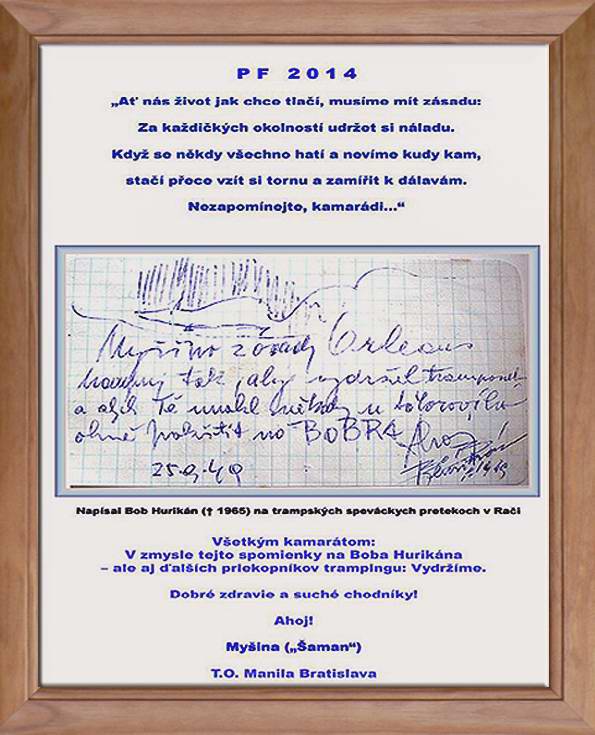 PF 2014
„Ať nás život jak chce tlačí, musíme mít zásadu:
Za každičkých okolností udržet si náladu.
Když se někdy všechno hatí a nevíme kudy kam,
stačí přece vzít si tornu a zamířit k dálavám.
Nezapomínejte, kamarádi...“
Orleans
tak, aby vydržel
a aby Tě mohl někdy u táborového
ohně na BOBRA
25.9.49
Napísal Bob Hurikán († 1965) na trampských speváckych pretekoch v Rači
Všetkým kamarátom:
V zmysle tejto spomienky na Boba Hurikána
– ale aj ďalších priekopníkov trampingu: Vydržíme.
Dobré zdravie a suché chodníky!
Ahoj!
Myšina („Šaman“)
T.O. Manila Bratislava